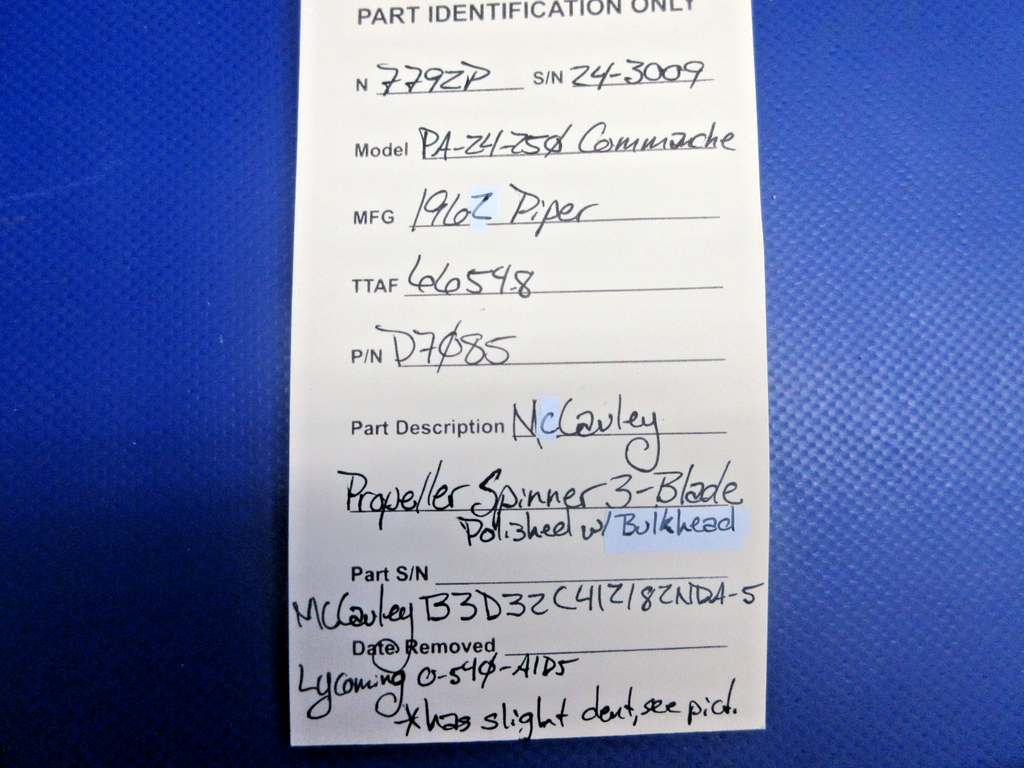 PART IDENTIFICATION ONLY
N 7792P S/N 24-3009
Model PA-24-250 Commache
MFG 1962 Piper
TTAF 6654.8
P/N D7085
Part Description McCauley
Propeller Spinner 3-Blade
Polished w/ Bulkhead
Part S/N
McCauley B3D32C412/82NDA-5
Date Removed
Lycoming O-540-A1D5
*has slight dent, see pict.